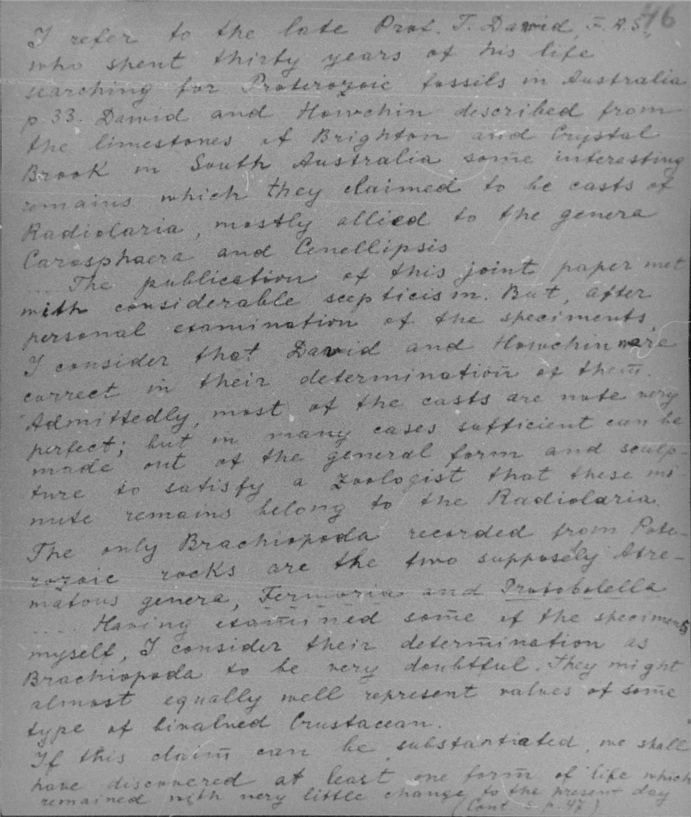 46
I refer to the late Prof. T. David, F.R.S.,
who spent thirty years of his life
searching for Proterozoic fossils in Australia
p 33. David and Howchin described from
the limestones of Brighton and Crystal
Brook in South Australia some interesting
remains which they claimed to be casts of
Radiolaria, mostly allied to the genera
Carosphaera and Cenellipsis
.... The publication of this joint paper met
with considerable scepticism. But, after
personal examination of the specimens,
I consider that David and Howchin were
correct in their determination of them.
Admittedly, most of the casts are note very
perfect; but in many cases sufficient can be
made out of the general form and sculp-
ture to satisfy a zoologist that these mi
nute remains belong to the Radiolaria.
The only Brachiopoda recorded from Pote-
rozoic rocks are the two supposely Atre-
matous genera, Fermoria and Protobolella
.... Having examined some of the specimens
myself, I consider their determination as
Brachiopoda to be very doubtful. They might
almost equally well represent valves of some
type of bivalved Crustacean.
If this claim can be substantiated, we shall
have discovered at least one form of life which
remained with very little change to the present day
(Cont. p. 47)